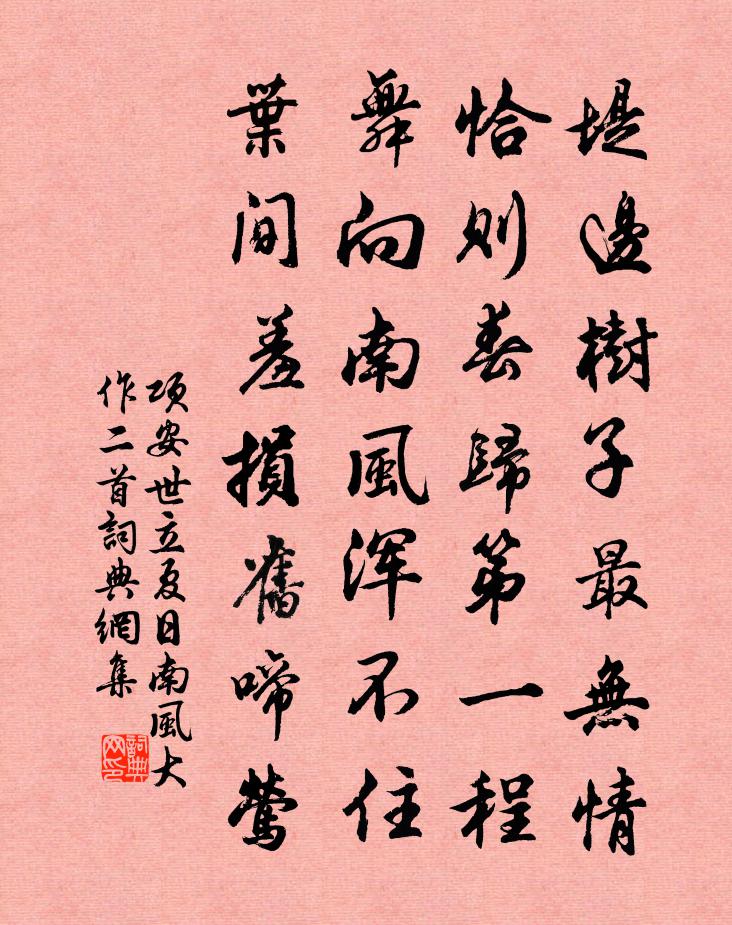 堤邊樹子最無情
恰則春歸第一程
舞向南風渾不住
葉間羞損舊啼鶯
項安世立夏日南風大
作二首詞典網集
詞典
网印